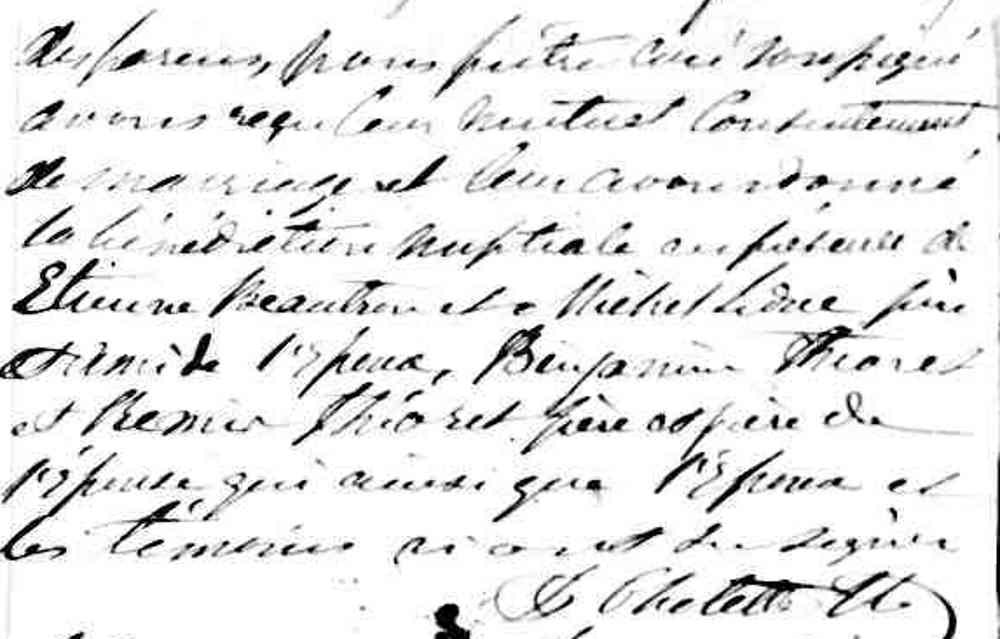 des parens, nous prêtre curé soussigné
avons reçu leur mutuel consentement
de mariage et leur avons donné
la bénédiction nuptiale en présence de
Etienne Beautron et Michel Leduc père
et ami de l'Epoux, Benjamin Théoret
et Théoret père et frère de
l'Epouse qui ainsi que l'Epoux et
les témoins n'ont su signer